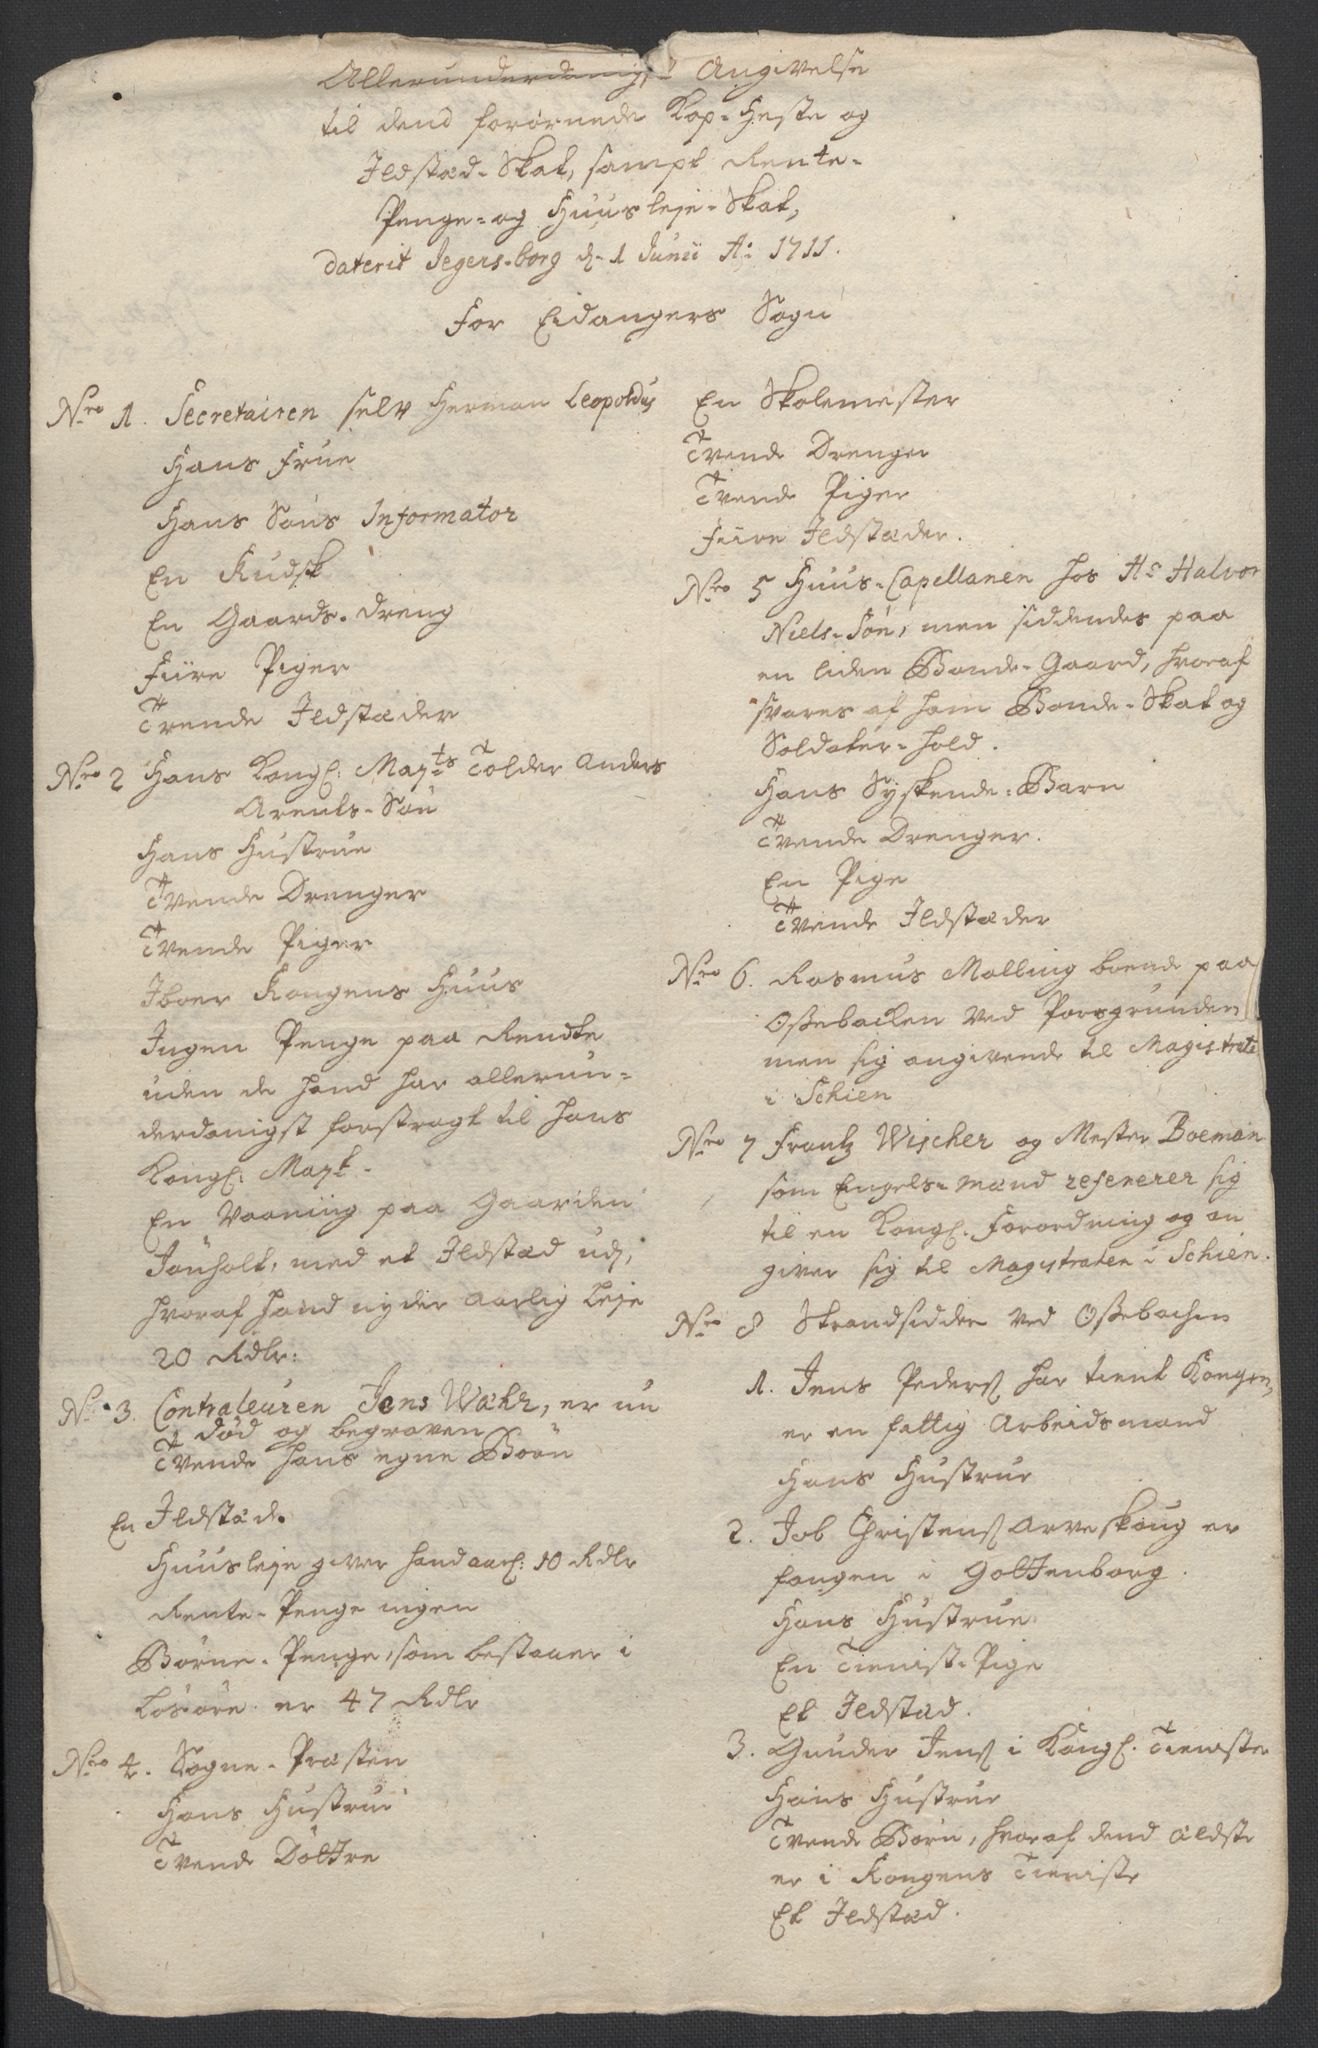 Allerunderdanigst Angivelse
til dend forordnede Kop-Heste og
Ildstæd-Skat, sampt Rente-
Penge-og Huusleje-Skat,
daterit Jegers-borg d. 1 Junii Ao 1711.
For Eidangers Sogn
Nro 1. Secretairen selv Herman Leopoldus
Hans Frue
Hans Søns Informator
En Kudsk
En Gaards-dreng
Fiire Piger
Trende Ildstæder
Nro 2 Hans Kongl: Mayts Tolder Anders
Arents-Søn
Hans Hustrue
Tvende Drenger
Tvende Piger
Iboer Kongens Huus
Ingen Penge paa Rendte
uden de hand har allerun-
derdanigst forstragt til Hans
Kongl: Mayt.
En Vaaning paa Gaarden
Jønholt, med et Ildstæd udj,
hvoraf hand nyder aarlig Leje
20 Rdlr:
Nro 3. Contraleuren Jens Wahr, er nu
død og begraven
Tvende hans egne Børn
En Ildstæd.
Huusleje giver hand aarl: 10 Rdlr
Rente-Penge ingen
Børne-Penge, som bestaaer i
Løsøre er 47 Rdlr
Nro 4. Sogne-Præsten
Hans Hustrue
Tvende Døttre
En Skolemester
Tvende Drenger
Tvende Piger
Fiire Ildstæder.
Nro 5 Huus-Capellanen hos Hr Halvor
Niels-Søn, men siddendes paa
en liden Bonde-Gaard, hvoraf
svares af ham Bonde-Skat og
Soldater-hold.
Hans Syskende-Barn
Tvende Drenger.
En Pige
Tvende Ildstæder
Nro 6. Rasmus Malling boende paa
Ossebacken ved Porsgrunden
men sig angivende til Magistrate
i Schien
Nro 7 Frantz Wischer og Mester Boeman
som Engels-mænd refererer sig
til en Kongl. Forordning og an
giver sig til Magistraten i Schien.
Nro 8 Strandsidder ved Ossebachen
1. Jens Peders har tient Kongen,
er en fattig Arbeidsmand
Hans Hustrue
2. Job Christens Arveskoug er
fangen i Gottenborg.
Hans Hustrue
En Tienist-Pige
Et Ildstæd.
3. Gunder Jens i Kongl. Tieniste
Hans Hustrue
Tvende Børn, hvoraf dend ældste
er i Kongens Tieniste
Et Ildstæd.